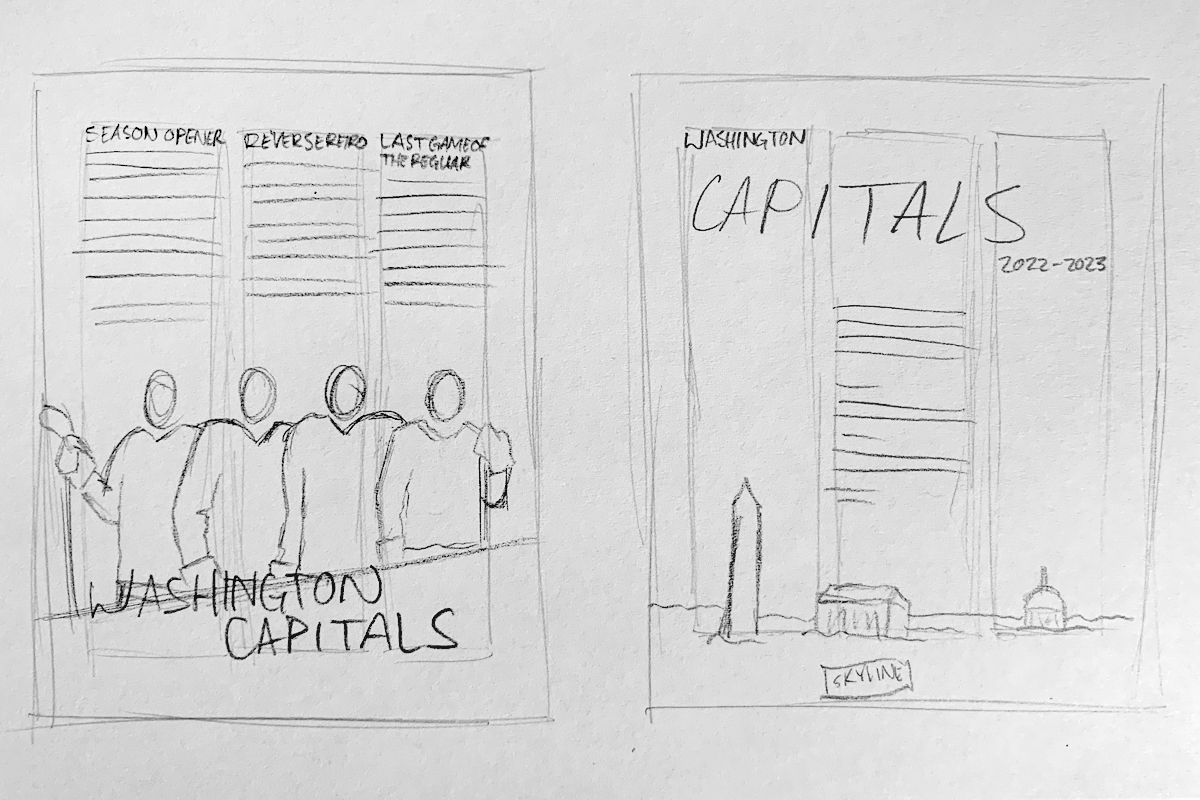 SEASON OPENER
REVERSE RETRO
LAST GAME OF
THE REGULAR
WASHINGTON
CAPITALS
WASHINGTON
CAPITALS
2022-2023
SKYLINE